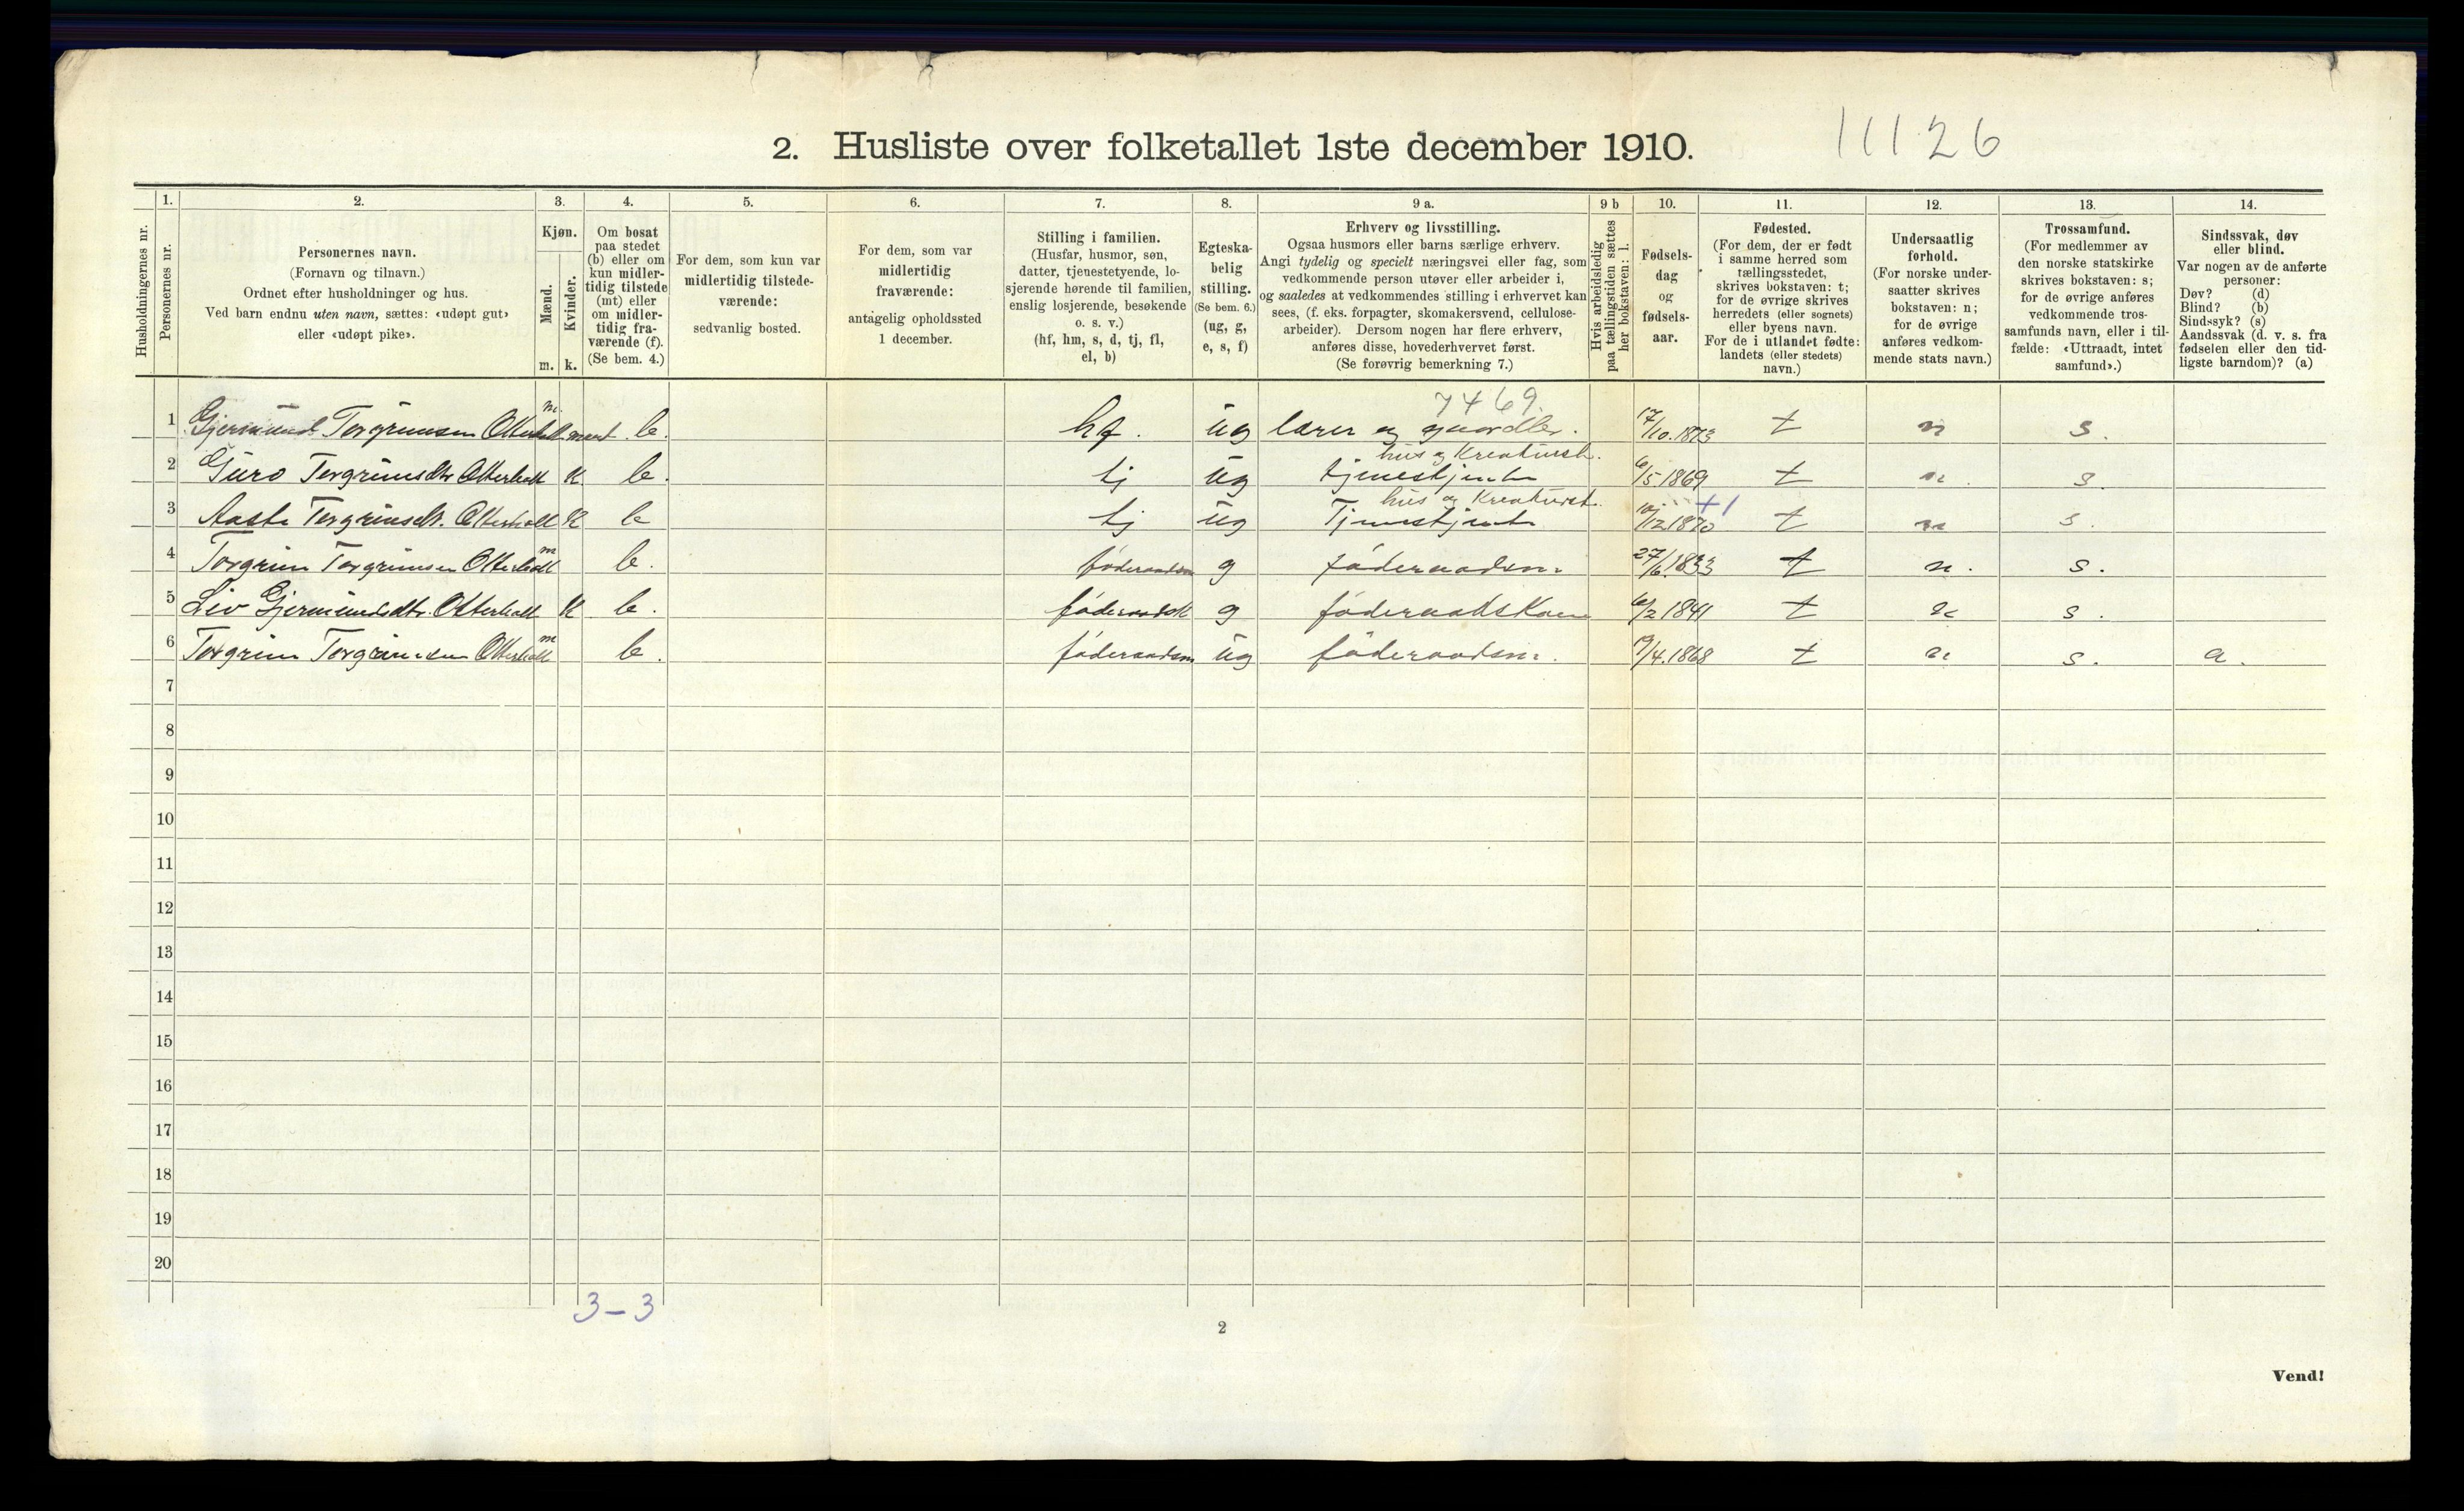 2. Husliste over folketallet 1ste december 1910.
11126
Husholdningernes nr.
1.
Personernes nr.
2.
Personernes navn.
(Fornavn og tilnavn.)
Ordnet efter husholdninger og hus.
Ved barn endnu uten navn, sættes: «udøpt gut»
eller «udøpt pike».
3.
Kjøn.
Mænd.
m.
Kvinder.
k.
4.
Om bosat
paa stedet
(b) eller om
kun midler-
tidig tilstede
(mt) eller
om midler-
tidig fra-
værende (f).
(Se bem. 4.)
5.
For dem, som kun var
midlertidig tilstede-
værende:
sedvanlig bosted.
6.
For dem, som var
midlertidig
fraværende:
antagelig opholdssted
1 december.
7.
Stilling i familien.
(Husfar, husmor, søn,
datter, tjenestetyende, lo-
sjerende hørende til familien,
enslig losjerende, besøkende
o. s. v.)
(hf, hm, s, d, tj, fl,
el, b)
8.
Egteska-
belig
stilling.
(Se bem. 6.)
(ug, g,
e, s, f)
9 a.
Erhverv og livsstilling.
Ogsaa husmors eller barns særlige erhverv.
Angi tydelig og specielt næringsvei eller fag, som
vedkommende person utøver eller arbeider i,
og saaledes at vedkommendes stilling i erhvervet kan
sees, (f. eks. forpagter, skomakersvend, cellulose-
arbeider). Dersom nogen har flere erhverv,
anføres disse, hovederhvervet først.
(Se forøvrig bemerkning 7.)
9 b
Hvis arbeidsledig
paa tællingstiden sættes
her bokstaven: l.
10.
Fødsels-
dag
og
fødsels-
aar.
11.
Fødested.
(For dem, der er født
i samme herred som
tællingsstedet,
skrives bokstaven: t;
for de øvrige skrives
herredets (eller sognets)
eller byens navn.
For de i utlandet fødte:
landets (eller stedets)
navn.)
12.
Undersaatlig
forhold.
(For norske under-
saatter skrives
bokstaven: n;
for de øvrige
anføres vedkom-
mende stats navn.)
13.
Trossamfund.
(For medlemmer av
den norske statskirke
skrives bokstaven: s;
for de øvrige anføres
vedkommende tros-
samfunds navn, eller i til-
fælde: «Uttraadt, intet
samfund».)
14.
Sindssvak, døv
eller blind.
Var nogen av de anførte
personer:
Døv? (d)
Blind? (b)
Sindssyk? (s)
Aandssvak (d. v. s. fra
fødselen eller den tid-
ligste barndom)? (a)
7469
1 Gjermund Torgrimsen Otterholt m b. hf. ug lærer og gaardbr. 17/10.1873 t n s.
hus og Kreaturst.
2 Guro Torgrimsdtr Otterholt K b. tj ug tjenestjente 6/5 1869 t n. s.
hus og Kreaturst. +1
3 Aaste Torgrimsdt. Otterholt K b tj ug Tjenestjente 10/12 1870 t n s.
4 Torgrim Torgrimsen Otterholt m b. føderaadsm g føderaadsm. 27/6.1833 t n. s.
5 Liv Gjermundsdtr. Otterholt K b. føderaadsk g føderaadskone 6/2 1841 t n s.
6 Torgrim Torgrimsen Otterholt m b. føderaadsm ug føderaadsm. 19/4.1868 t n s. a.
7
8
9
10
11
12
13
14
15
16
17
18
19
20
3-3
2
Vend!